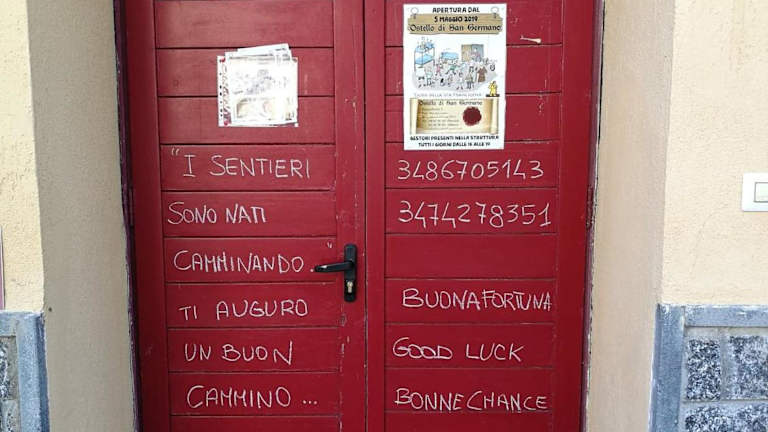 APERTURA DAL
5 MAGGIO 2019
Ostello di San Germano
Ostello di San Germano
GESTORI PRESENTI NELLA STRUTTURA
TUTTI I GIORNI DALLE 16 ALLE 19
"I SENTIERI
SONO NATI
CAMMINANDO.
TI AUGURO
UN BUON
CAMMINO...
3486705143
3474278351
BUONA FORTUNA
GOOD LUCK
BONNE CHANCE